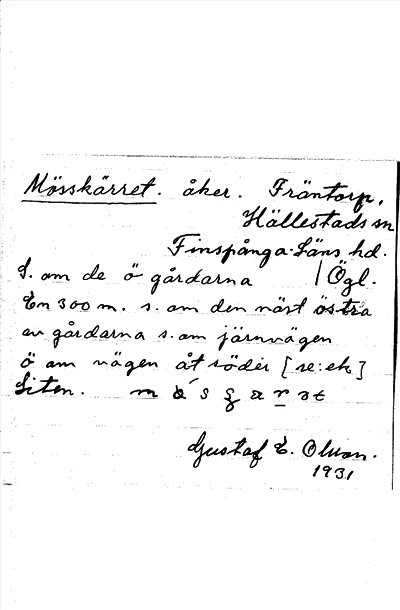 Mösskärret. åker. Fräntorp,
Hällestads sn
Finspånga-Läns hd.
S. om de ö gårdarna | Ögl.
En 300 m. s. om den näst östra
av gårdarna s. om järnvägen
ö om vägen åt söder [se: ek]
Liten.
Gustaf E. Olson.
1931